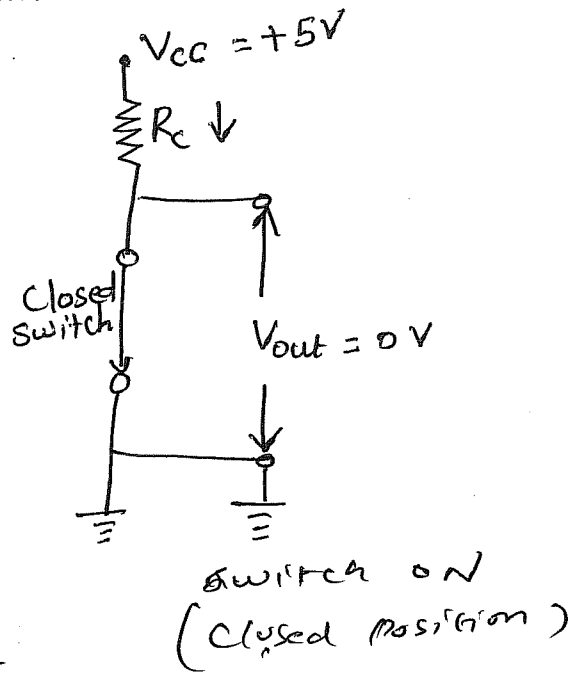 Vcc = +5V
Rc ↓
Closed
Switch
Vout = 0 V
Switch ON
(Closed Position)